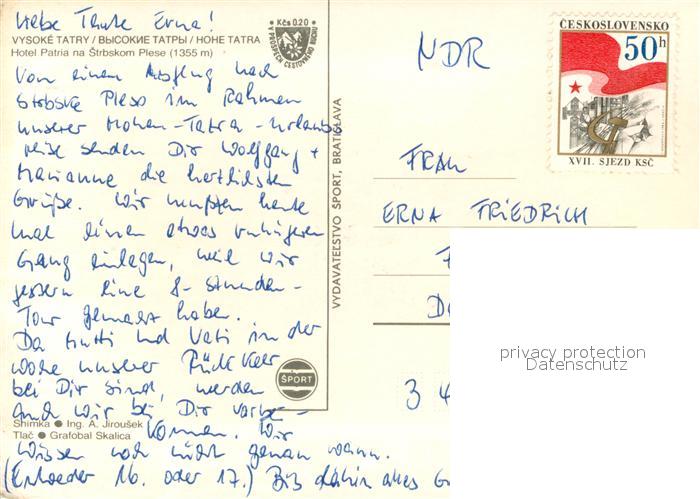 Liebe Tante Erna!
VYSOKÉ TATRY / ВЫСОКИЕ ТАТРЫ / HOHE TATRA
Hotel Patria na Štrbskom Plese (1355 m)
Von einem Ausflug nach
Strbske Pleso im Rahmen
unserer Hohen-Tatra-Urlaubs
reise senden Dir Wolfgang +
Marianne die herzlichsten
Grüße. Wir mußten heute
mal einen etwas ruhigeren
Gang einlegen, weil wir
gestern eine 8-Stunden-
Tour gemacht haben.
Da Mutti und Vati in der
Woche unserer Rückkehr
bei Dir sind, werden
auch wir bei Dir vorbe-
Snímka ● Ing. A. Jiroušek
kommen. Wir
Tlač ● Grafobal Skalica
wissen noch nicht genau wann.
(Entweder 16. oder 17.) Bis dahin alles G
Kčs 0.20
VYDAVATEĽSTVO ŠPORT, BRATISLAVA
ŠPORT
ČESKOSLOVENSKO
50h
XVII. SJEZD KSČ
NDR
FRAU
ERNA FRIEDRICH
D
3 4
privacy protection
Datenschutz